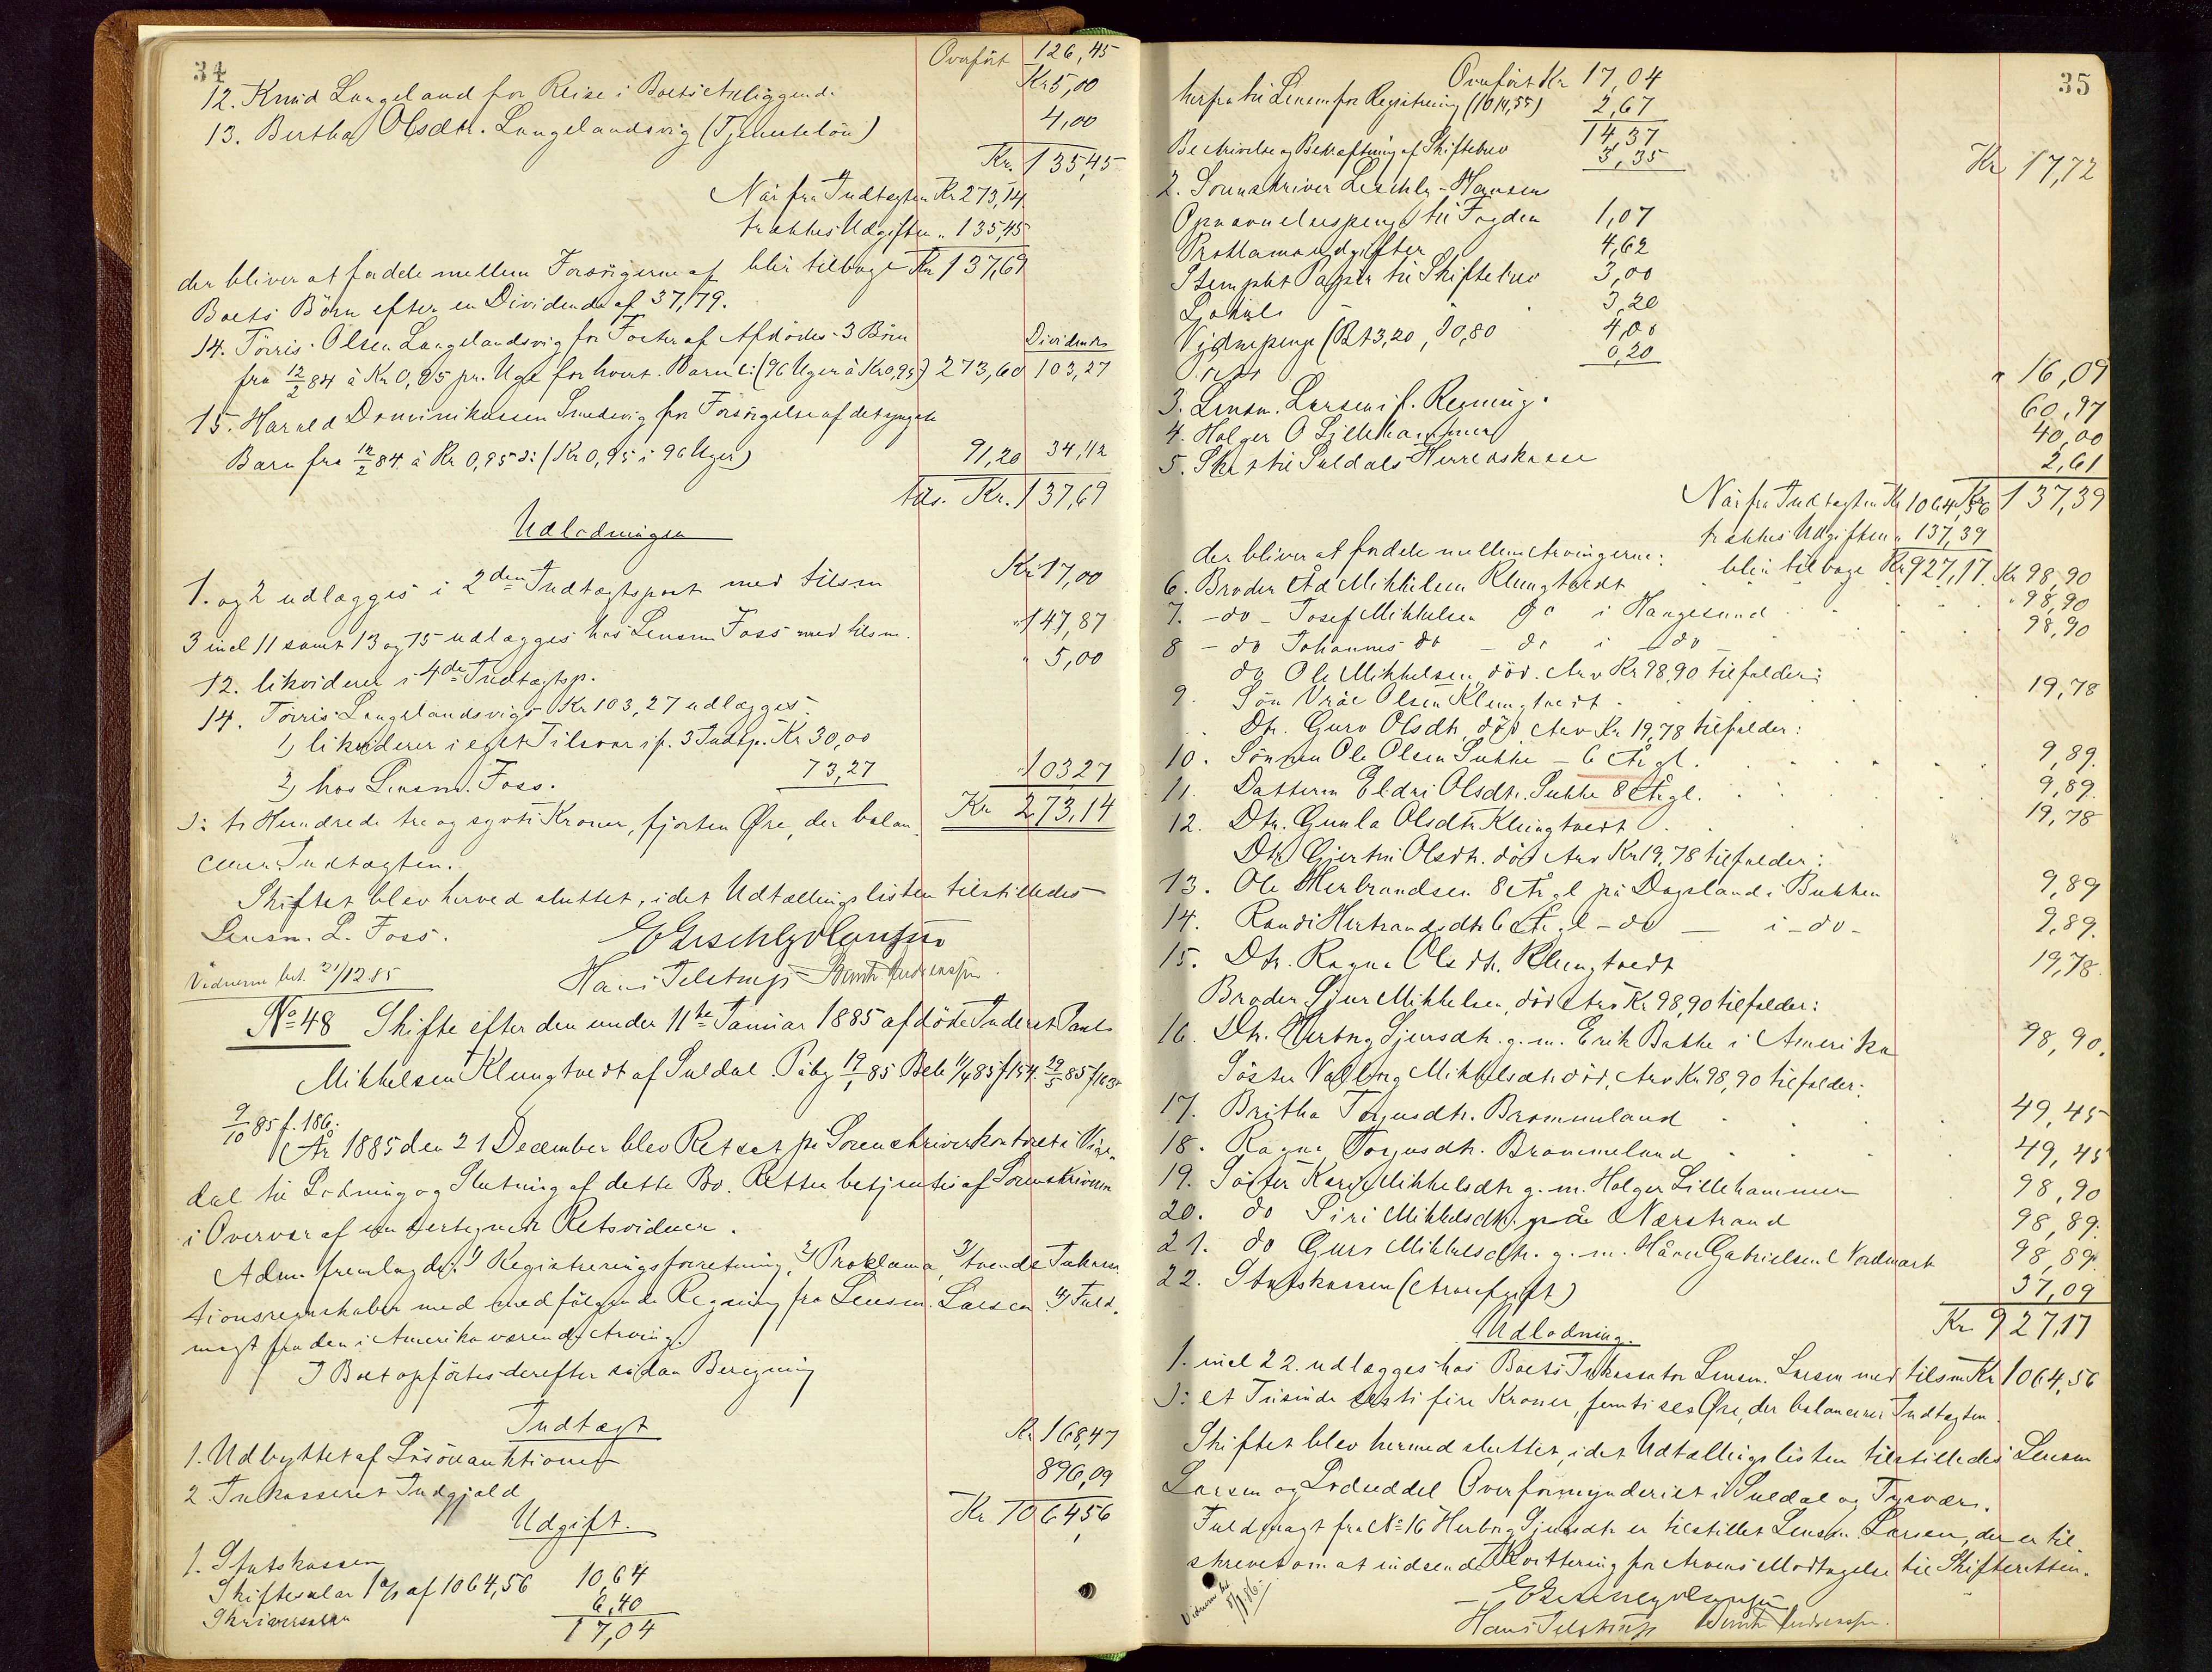 34
Overført 126,45
12. Knud Langeland for Reise i Boets Anliggende Kr 5,00
13. Bertha Olsdtr. Langelandsvig (Tjenesteløn) 4,00
Kr. 135,45
Når fra Indtægten Kr 273,14
trækkes Udgiften " 135,45
der bliver at fordele mellem Forsørgerne af blir tilbage Kr 137,69
Boets Börn efter en Dividende af 37,79.
14. Törris Olsen Langelandsvig for Foster af Afdødes 3 Börn Dividende
fra 12/2 84 à Kr 0,95 pr. Uge for hvert Barn (96 Uger à Kr 0,95) 273,60 103,27
15. Harald Dominikussen Smedsvig for Forsørgelse af det yngste
Barn fra 12/2 84 à Kr 0,95 ɔ: (Kr 0,95 i 96 Uger) 91,20 34,42
tils. Kr. 137,69
Udlodningen
1. og 2 udlægges i 2den Indtægtspost med tilsm Kr 17,00
3 incl 11 samt 13 og 15 udlægges hos Lensm Foss med tilsm. " 147,87
12. likviderer i 4de Indtægtsp. " 5,00
14. Törris Langelandsvigs Kr 103,27 udlægges:
1) likviderer i eget Tilsvar if. 3 Indtp. Kr 30,00
2) hos Lensm. Foss. 73,27 " 103,27
ɔ: to Hundrede tre og sytti Kroner, fjorten Øre, der balan- Kr 273,14
cerer Indtægten.
Skiftet blev herved sluttet, idet Udtællingslisten tilstilledes
Lensm. L. Foss.
Vidnerne bet. 21/12 85 Hans Telstrup
No 48 Skifte efter den under 11te Januar 1885 afdöde Inderst Paul
Mikkelsen Klungtvedt af Suldal. Påbg 19/1 85 Beh 1/4 85 f 154. 29/5 85 f 163
9/10 85 f. 186.
År 1885 den 21 December blev Ret sat på Sorenskriverkontoret i Vige-
dal til Lodning og Slutning af dette Bo. Retten betjentes af Sorenskriveren
i Overvær af undertegnede Retsvidner.
Adm. fremlagde: 1) Registreringsforretning, 2) Proklama, 3) tvende Inkassa-
tionsregnskaber med medfölgende Regning fra Lensm. Larsen 4) Fuld-
magt fra den i Amerika værende Arving.
I Boet opførtes derefter sådan Beregning
Indtægt
1. Udbyttet af Lösöreauktionen Kr 168,47
2. Inkasseret Indgjæld 896,09
Kr 1064,56
Udgift.
1. Statskassen
Skiftesalær 1 % af 1064,56 10,64
Skriversalær 6,40
17,04
35
Overført Kr 17,04
herfra til Lensm for Registrering (1014,55) 2,67
14,37
Beskrivelse og Bekræftning af Skiftebrev 3,35
Kr 17,72
2. Sorenskriver Leschly-Hansen
Opnævnelsespenge til Fogden 1,07
Proklamaudgifter 4,62
Stemplet Papir til Skiftebrev 3,00
3,20
Vidnepenge (Rt 3,20, 0,80 4,00
Porto 0,20
" 16,09
3. Lensm. Larsen if. Regning. 60,97
4. Holger O Lillehammer 40,00
5. Skat til Suldals Herredskasse 2,61
Når fra Indtægten Kr 1064,56 Kr 137,39
trækkes Udgiften " 137,39
der bliver at fordele mellem Arvingerne: blir tilbage Kr 927,17
6. Broder Åd Mikkelsen Klungtvedt Kr 98,90
7. -do- Josef Mikkelsen do i Haugesund " 98,90
8 - do Johannes do - do i do - 98,90
do Ole Mikkelsen, död. Arv Kr 98,90 tilfalder:
9. Sön Vråe Olsen Klungtvedt 19,78
Dtr. Guro Olsdtr, död Arv Kr 19,78 tilfalder:
10. Sönnen Ole Olsen Sukke - 6 År gl. 9,89.
11. Datteren Eldri Olsdtr. Sukke 8 År gl. 9,89.
12. Dtr. Gunla Olsdtr Klungtvedt 19,78
Dtr. Gjertru Olsdtr. död Arv Kr 19,78 tilfalder:
13. Ole Herbrandsen 8 År gl på Dagsland i Bukken 9,89
14. Randi Herbrandsdtr 6 År gl - do - i - do - 9,89.
15. Dtr. Ragna Olsdtr. Klungtvedt 19,78.
Broder Sjur Mikkelsen, död Arv Kr 98,90 tilfalder:
16. Dtr. Herborg Sjursdtr. g. m. Erik Bakke i Amerika 98,90.
Söster Valborg Mikkelsdtr död, Arv Kr 98,90 tilfalder:
17. Britha Torjusdtr. Brommeland 49,45
18. Ragna Torjusdtr. Brommeland 49,45
19. Söster Kari Mikkelsdtr g. m. Holger Lillehammer 98,90
20. do Siri Mikkelsdtr. på Nærstrand 98,89.
21. do Guro Mikkelsdtr. g. m. Håvar Gabrielsen Nordmark 98,89.
22. Statskassen (Arveafgift) 37,09
Kr 927,17
Udlodning.
1. incl 22. udlægges hos Boets Inkassator Lensm. Larsen med tilsm Kr 1064,56
ɔ: et Tusinde seksti fire Kroner, femti sex Øre, der balancerer Indtægten.
Skiftet blev hermed sluttet, idet Udtællingslisten tilstilledes Lensm
Larsen og Lodseddel Overformynderiet i Suldal og Tysvær.
Fuldmagt fra No 16 Herborg Sjursdtr er tilstillet Lensm. Larsen, der er til-
skrevet om at indsende Kvittering for Arvens Modtagelse til Skifteretten.
Vidnerne bet
Hans Telstrup